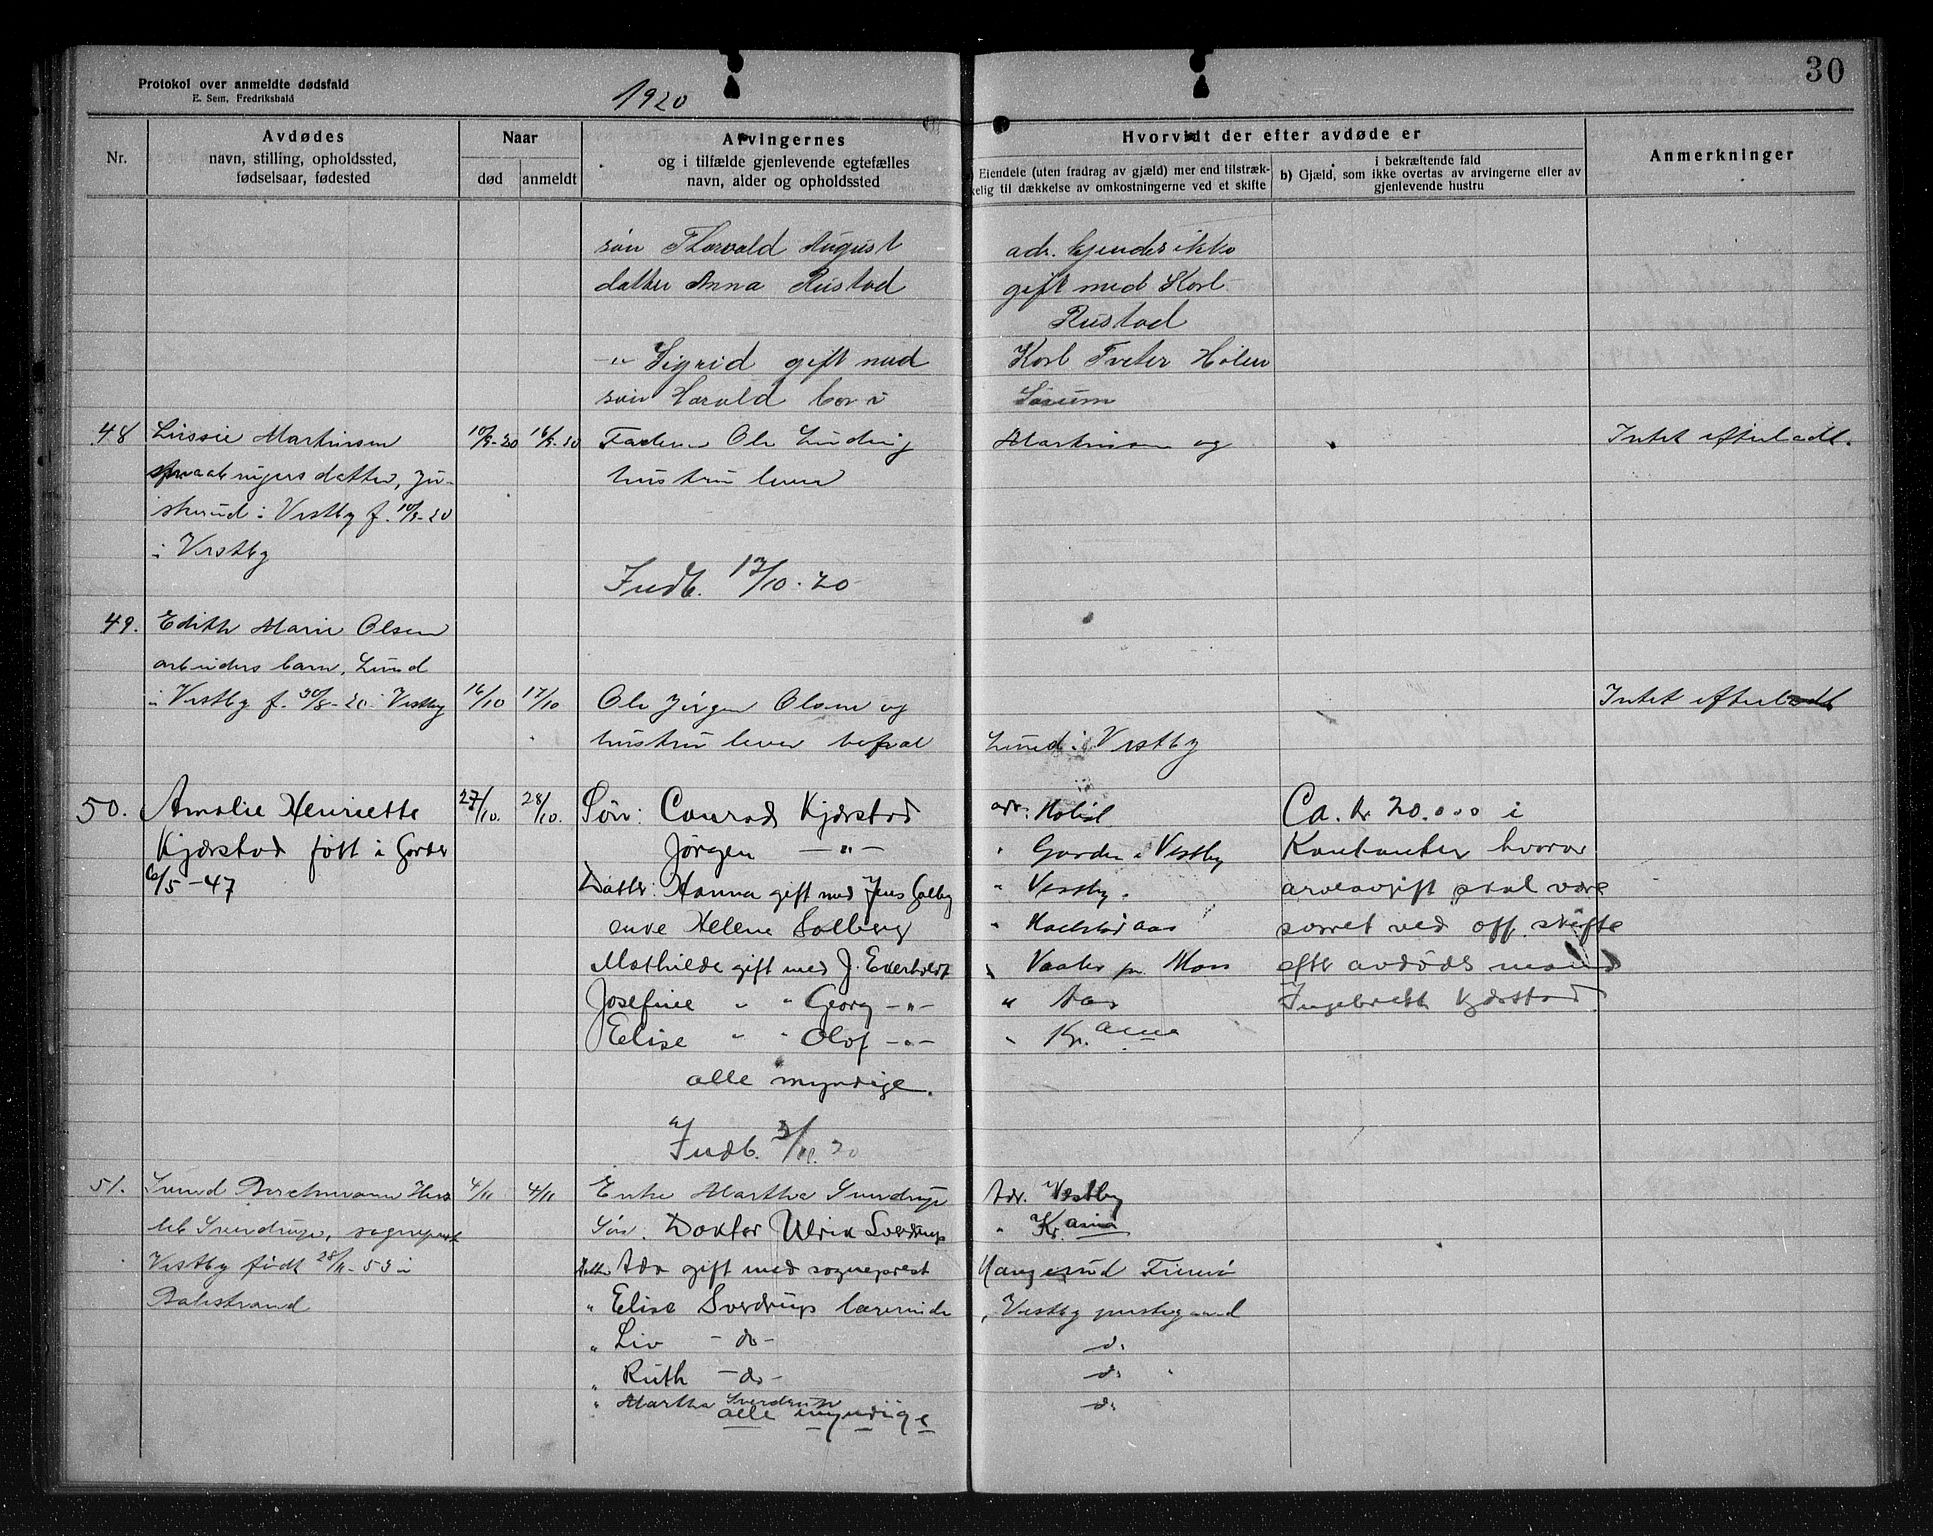 30
Protokol over anmeldte dødsfald
E. Sem, Fredrikshald
1920
Nr.
Avdødes
navn, stilling, opholdssted,
fødselsaar, fødested
Naar
død
anmeldt
Arvingernes
og i tilfælde gjenlevende egtefælles
navn, alder og opholdssted
Hvorvidt der efter avdøde er
Eiendele (uten fradrag av gjæld) mer end tilstræk-
kelig til dækkelse av omkostningerne ved et skifte
i bekræftende fald
b) Gjæld, som ikke overtas av arvingerne eller av
gjenlevende hustru
Anmerkninger
søn Thorvald August adr. kjendes ikke
datter Anna Rustad gift med Karl
Rustad
-"- Sigrid gift med Karl Tveter Hølen
søn Harald bor i Saxum
48 Lussie Martinsen 10/9-20 16/9-20 Faderen Ole Ludvig Martinsen og Intet efterladt.
datter, hustru lever
i Vestby f. 10/9-20
i Vestby
Indb. 17/10-20
49. Edith Marie Olsen
arbeiders barn, Lund
i Vestby f. 30/8-20 i Vestby 16/10 17/10 Ole Jørgen Olsen og Intet efterladt
hustru lever Lund i Vestby
50. Amalie Henriette 27/10. 28/10. Søn: Conrad Kjærstad adr: Ca. kr 20.000 i
Kjærstad født i Garder Jørgen -"- " Garder i Vestby Kontanter hvorav
6/5-47 Datter: Hanna gift med Jens " Vestby. arveavgift skal være
enke Helene Solberg " svaret ved off. skifte
Mathilde gift med J. " Vaaler pr. Moss efter avdøds mand
Josefine " " Georg -"- " Aas Ingebrett Kjærstad
Elise " " Olof -"- " Kr.ania
alle myndige.
Indb. 3/11. 20
51. 4/11 4/11 Enke Martha Sverdrup Adr. Vestby
Sverdrup, sogneprest Søn. Doktor Ulrik Sverdrup " Kr.ania
Vestby født 28/11-53 i Datter Ada gift med sogneprest
Balestrand " Elise Sverdrup lærerinde " Vestby prestegaard
" Liv -do- do
" Ruth -do- do
" Martha Sverdrup do
alle myndige